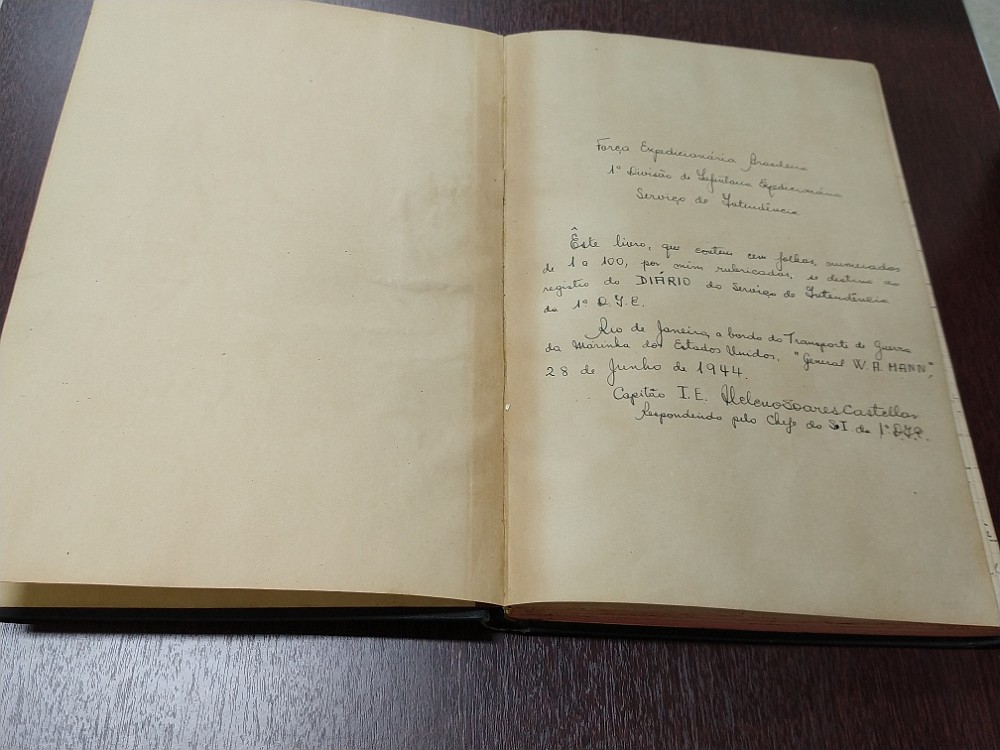 Força Expedicionária Brasileira
1ª Divisão de Infantaria Expedicionária
Serviço de Intendência
Êste livro, que contem cem folhas, numeradas
de 1 a 100, por mim rubricadas, se destina ao
registro do DIÁRIO do Serviço de Intendência
da 1ª D.I.E.
Rio de Janeiro, a bordo do Transporte de Guerra
da Marinha dos Estados Unidos, "General W. A. MANN",
28 de Junho de 1944.
Capitão I.E. Heleno Soares Castellar
Respondendo pelo Chefe do S.I. da 1ª D.I.E.